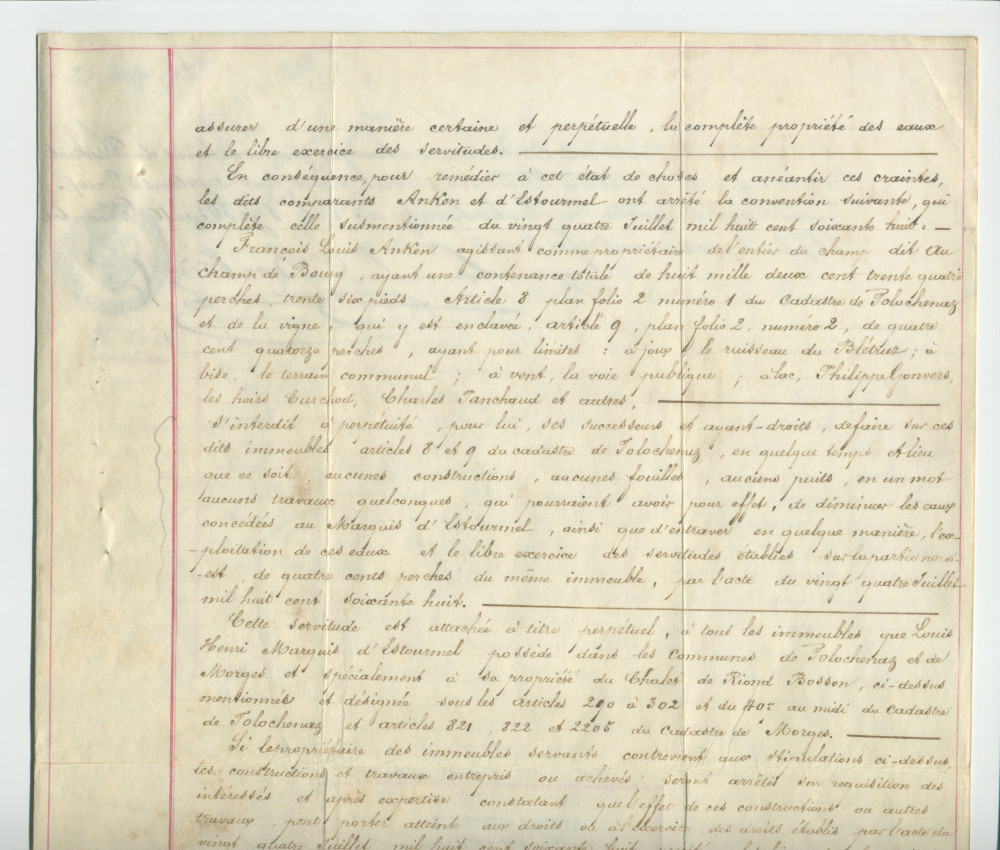 assurer d'une manière certaine et perpétuelle, la complète propriété des eaux
et le libre exercice des servitudes.
En conséquence, pour remédier à cet état de choses et anéantir ces craintes,
les dits comparants Anken et d'Estourmel ont arrêté la convention suivante, qui
complète celle susmentionnée du vingt quatre Juillet mil huit cent soixante huit. —
François Louis Anken agissant comme propriétaire de l'entier du champ dit Au
champ de Bourg, ayant une contenance totale de huit mille deux cent trente quatre
perches, trente six pieds, Article 8 plan folio 2 numéro 1 du Cadastre de Tolochenaz
et de la vigne, qui y est enclavée, article 9, plan folio 2, numéro 2, de quatre
cent quatorze perches, ayant pour limites : à joux, le ruisseau du Blétruz ; à
bise, le terrain communul ; à vent, la voie publique ; à lac, Philippe Gonvers,
les hoirs Curchod, Charles Tanchaud et autres,
s'interdit à perpétuité, pour lui, ses successeurs et ayant-droits, de faire sur ces
dits immeubles articles 8 et 9 du cadastre de Tolochenaz, en quelque temps et lieu
que ce soit, aucunes constructions, aucunes fouilles, aucuns puits, en un mot
aucuns travaux quelconques, qui pourraient avoir pour effet, de diminuer les eaux
concédées au Marquis d'Estourmel, ainsi que d'entraver en quelque manière, l'ex-
-ploitation de ces eaux et le libre exercice des servitudes établies sur la partie nord-
-est, de quatre cents perches du même immeuble, par l'acte du vingt quatre Juillet
mil huit cent soixante huit.
Cette servitude est attachée à titre perpétuel, à tous les immeubles que Louis
Henri Marquis d'Estourmel possède dans les Communes de Tolochenaz et de
Morges et spécialement à sa propriété du Chalet de Riond Bosson, ci-dessus
mentionnés et désignée sous les articles 290 à 302 et du au midi du Cadastre
de Tolochenaz et articles 821, 822 et 2205 du Cadastre de Morges.
Si le propriétaire des immeubles servants contrevient aux stipulations ci-dessus,
les constructions et travaux entrepris ou achevés seront arrêtés sur requisition des
intéressés et après expertise constatant que l'effet de ces constructions ou autres
travaux, peut porter atteint aux droits ou à l'exercice des droits établis par l'acte du
vingt quatre Juillet mil huit cent soixante huit